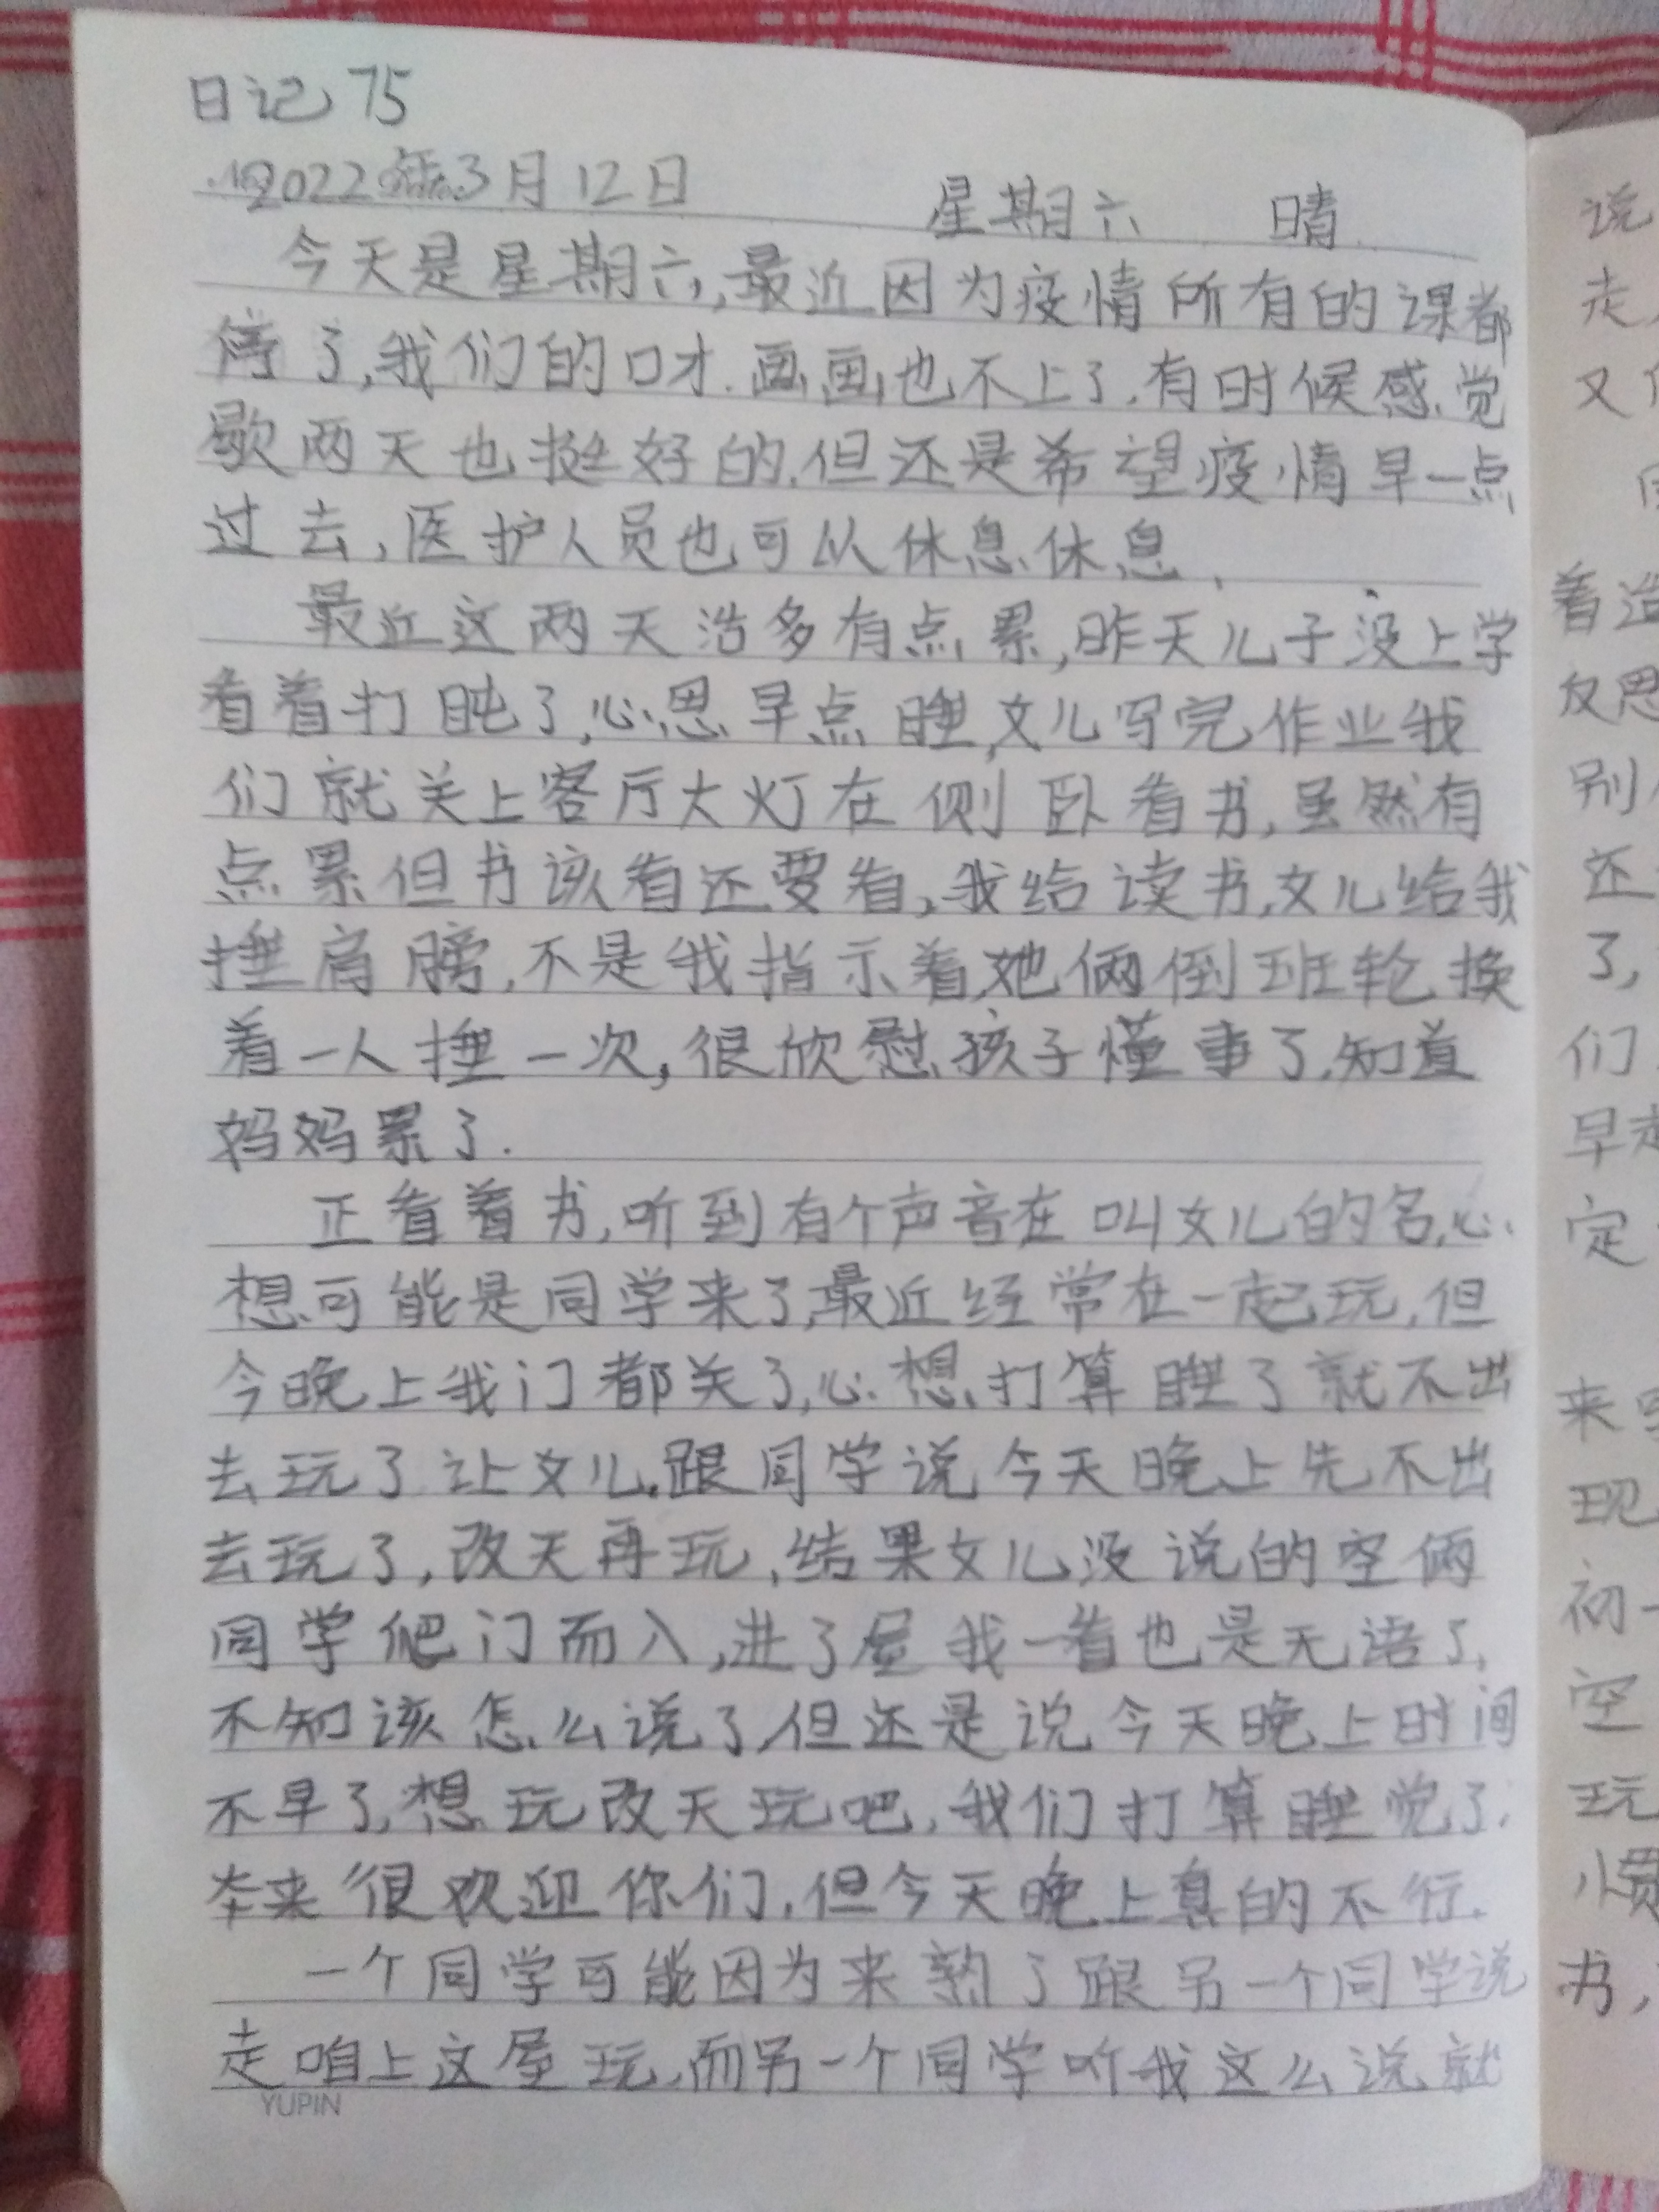 日记75
2022年3月12日 星期六 晴
今天是星期六,最近因为疫情所有的课都
停了,我们的口才.画画也不上了.有时候感觉
歇两天也挺好的.但还是希望疫情早一点
过去,医护人员也可以休息休息.
最近这两天浩多有点累,昨天儿子没上学
看着打盹了,心思早点睡,女儿写完作业我
们就关上客厅大灯在侧卧看书,虽然有
点累但书该看还要看,我给读书,女儿给我
捶肩膀,不是我指示着,她俩倒班轮换
着一人捶一次,很欣慰孩子懂事了.知道
妈妈累了.
正看着书,听到有个声音在叫女儿的名,心
想可能是同学来了,最近经常在一起玩,但
今晚上我门都关了,心想打算睡了就不出
去玩了让女儿跟同学说今天晚上先不出
去玩了,改天再玩,结果女儿没说的空俩
同学爬门而入,进了屋我一看也是无语了,
不知该怎么说了,但还是说今天晚上时间
不早了,想玩改天玩吧,我们打算睡觉了,
本来很欢迎你们,但今天晚上真的不行.
一个同学可能因为来熟了跟另一个同学说
走咱上这屋玩,而另一个同学听我这么说就
YUPIN
说
走
又
着
反思
别
还
了,
们
早起
定
来
现
初一
空
玩
惯
书,